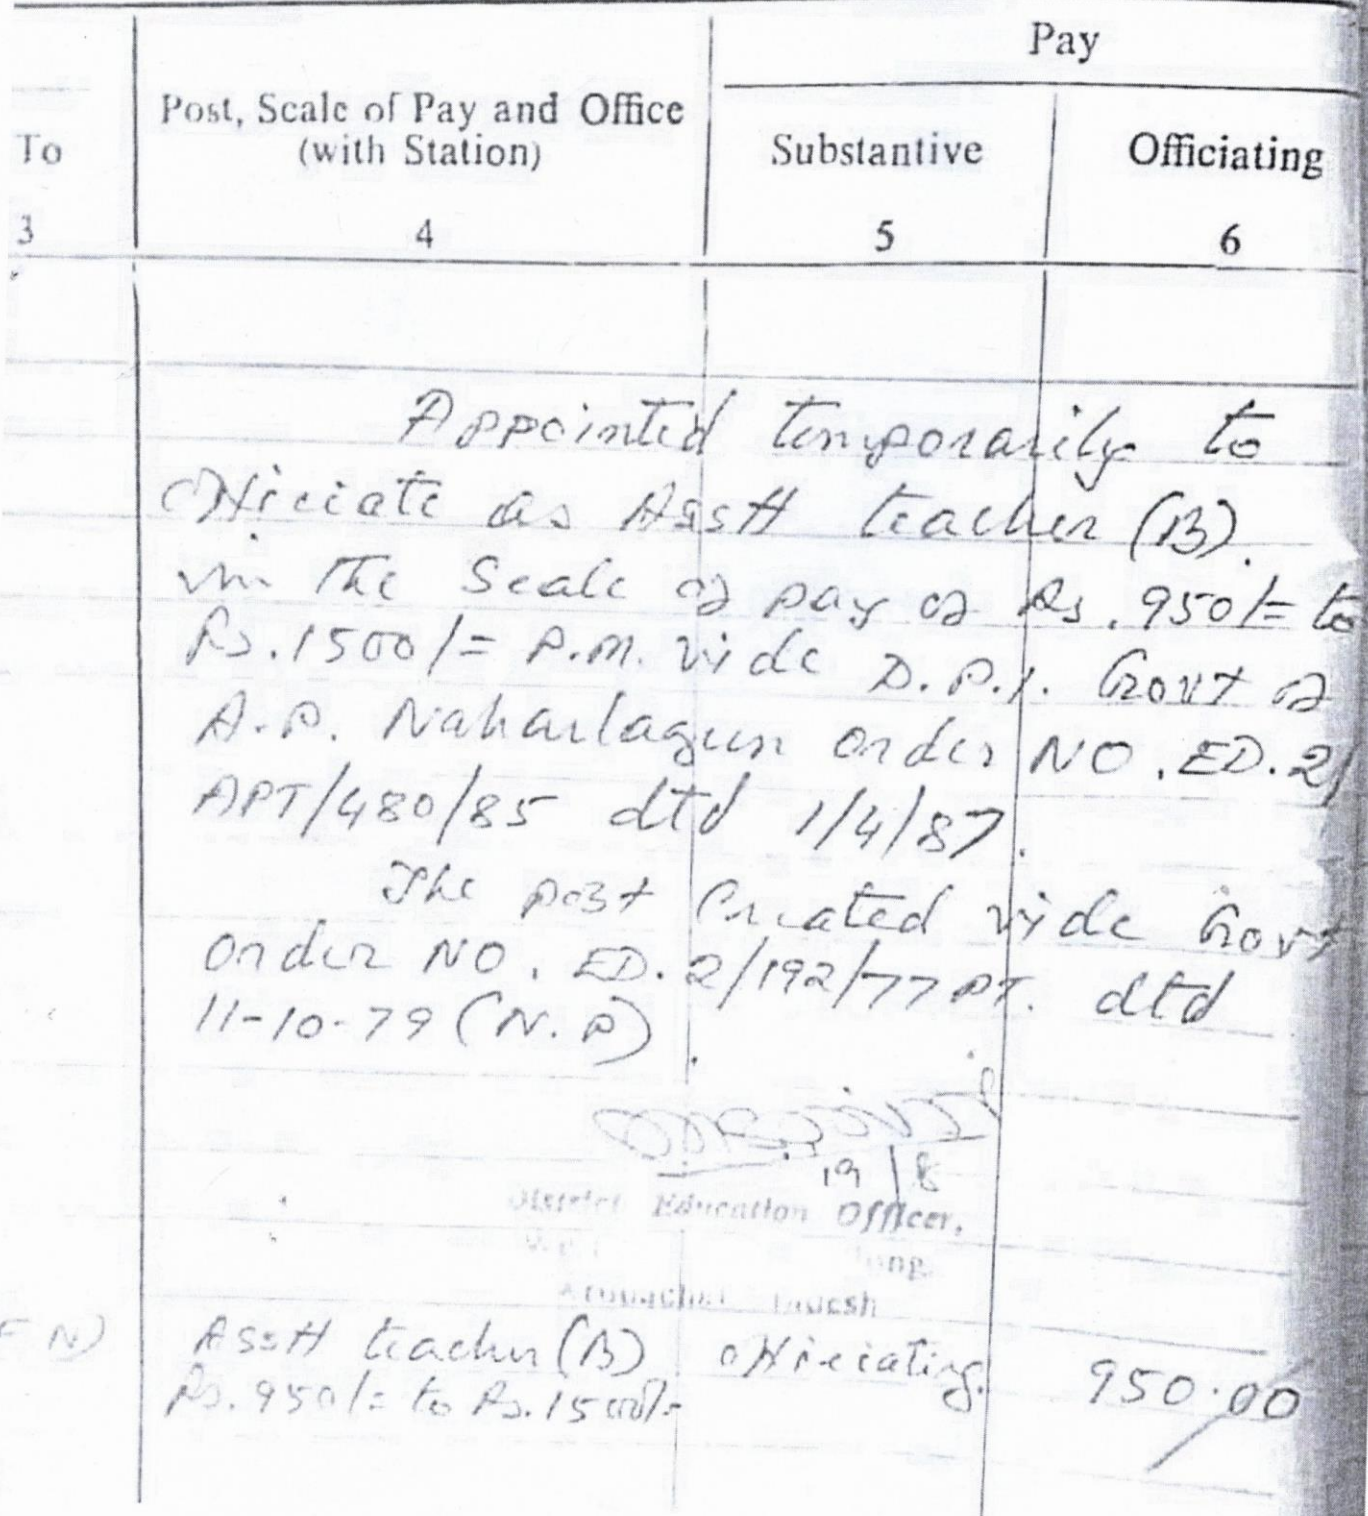 Pay
Post, Scale of Pay and Office
To (with Station) Substantive Officiating
3 4 5 6
Appointed temporarily to
officiate as Asstt teacher (B).
in the Scale of pay of Rs. 950/= to
Rs. 1500/= P.M. vide D.P.I. Govt of
A.P. Naharlagun order NO. ED. 2/
APT/480/85 dtd 1/4/87.
The post Created vide Govt
order NO. ED. 2/192/77 PT. dtd
11-10-79 (N.P).
19/8
District Education Officer,
Arunachal Pradesh
F N) Asstt teacher (B) officiating. 950.00
Rs. 950/= to Rs. 1500/-